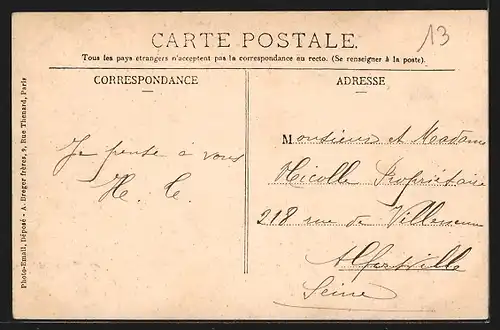 CARTE POSTALE.
13
Tous les pays étrangers n'acceptent pas la correspondance au recto. (Se renseigner à la poste).
CORRESPONDANCE
Je pense à vous
H. C.
ADRESSE
Monsieur et Madame
Nicolle Propriétaire
218 rue de Villeneuve
Alfortville
Seine
Photo-Email, Déposé - A. Breger frères, 9, Rue Thenard, Paris